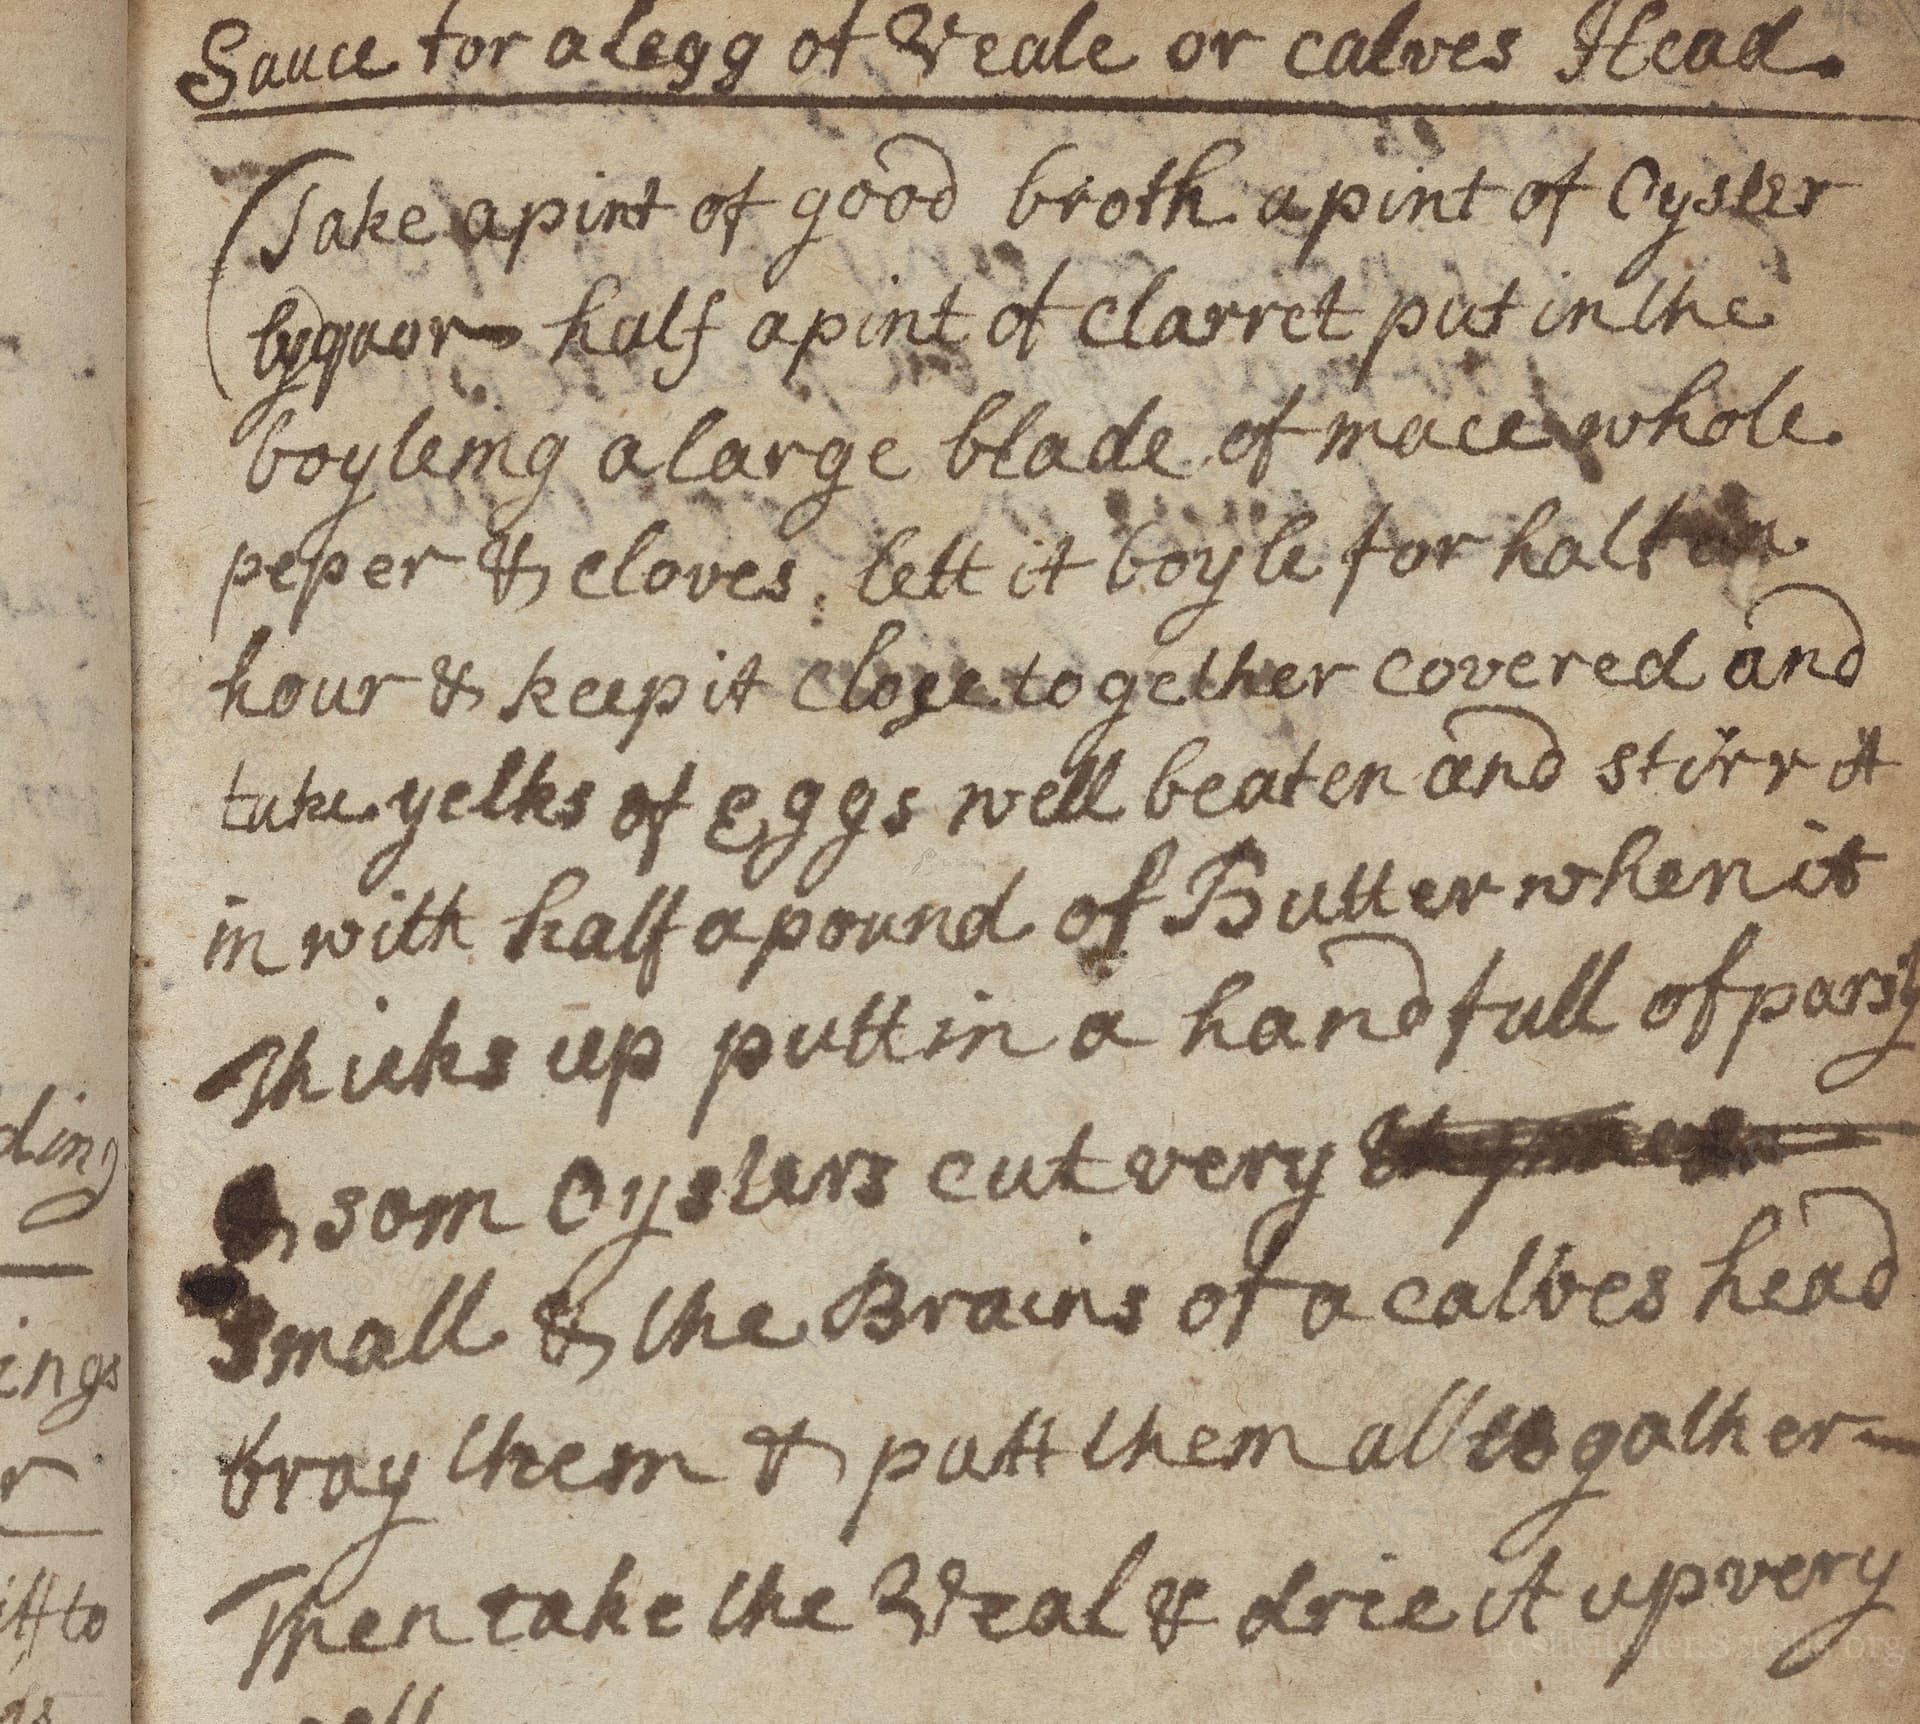 Sauce for a legg of Veale or calves Head.
Take a pint of good broth a pint of Oyster
lyquor half a pint of clarret put in the
boyleing a large blade of mace whole
peper & cloves, lett it boyle for half an
hour & keep it close together covered and
take yelks of eggs well beaten and stirr it
in with half a pound of Butter when it
thicks up putt in a hand full of parsly
& som Oysters cut very
small & the Brains of a calves head
bray them & putt them all togather
Then take the Veal & drie it up very
well
ding
ings
r
itt to
gs
LostKitchenScrolls.org